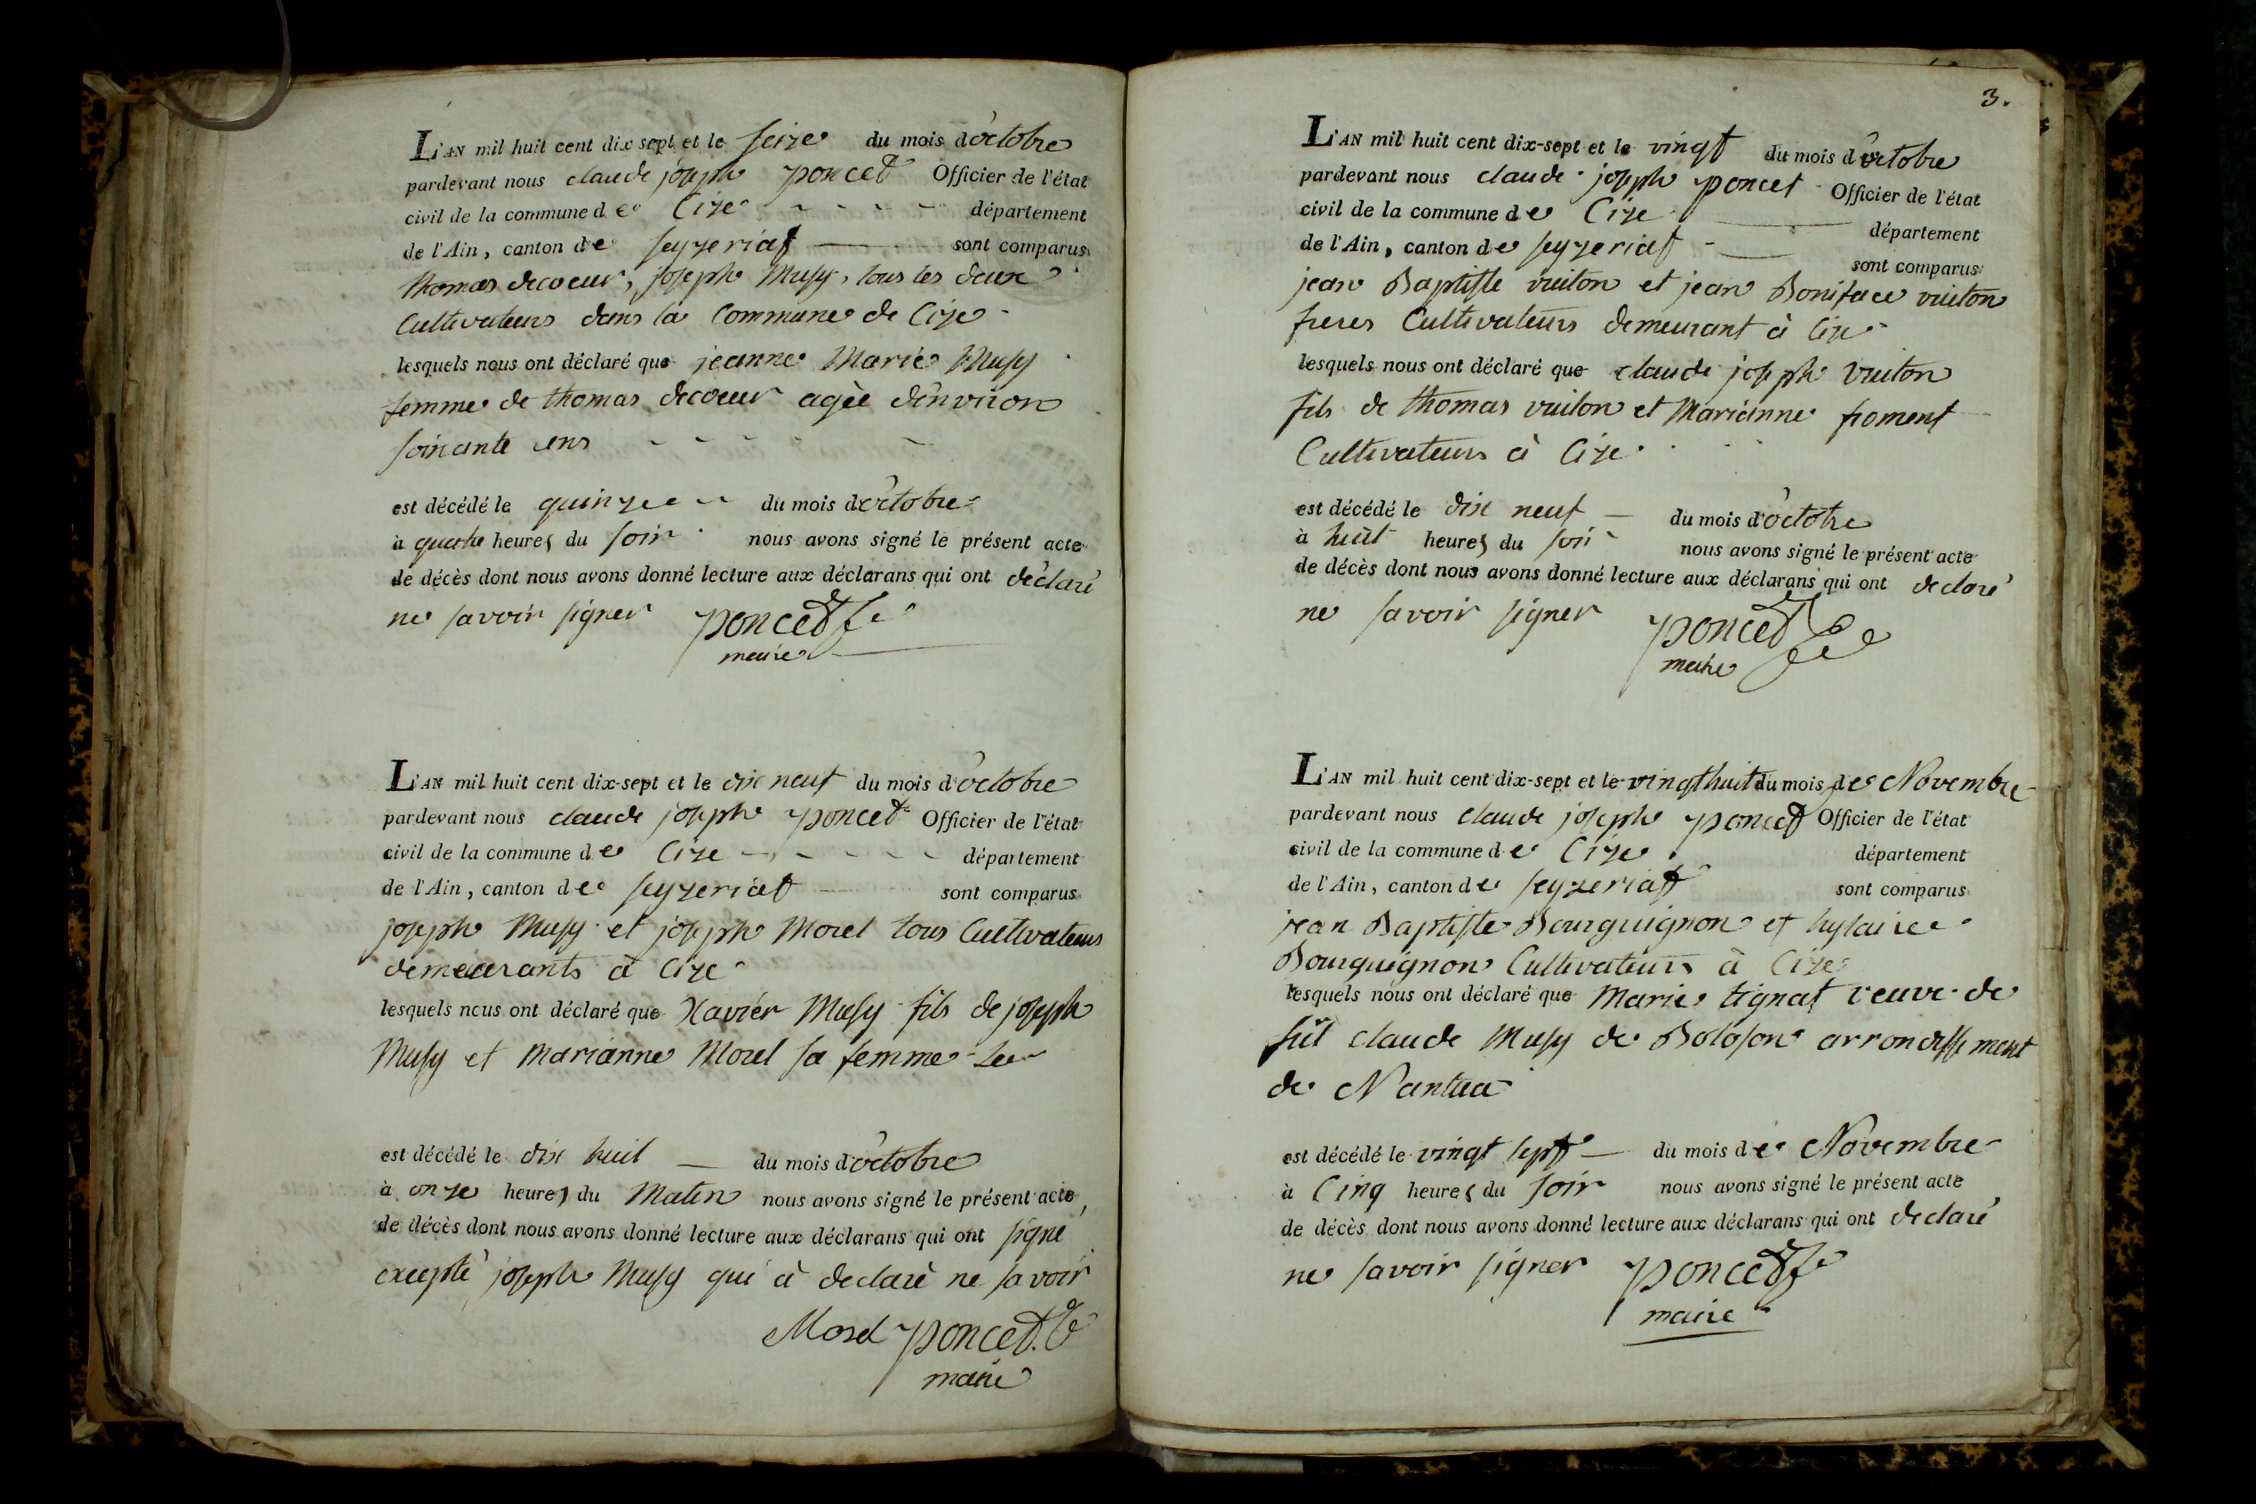 L'AN mil huit cent dix sept et le seize du mois d'octobre
pardevant nous claude joseph poncet Officier de l'état
civil de la commune de Cize département
de l'Ain, canton de seyzeriat sont comparus
thomas decoeur, joseph Musy, tous les deux
Cultivateurs dans la Commune de Cize
lesquels nous ont déclaré que jeanne Marie Musy
femme de thomas decoeur agèe d'environ
soixante ans
est décédé le quinze du mois d'octobre
à quatre heures du soir nous avons signé le présent acte
de décès dont nous avons donné lecture aux déclarans qui ont déclaré
ne savoir signer poncet
maire
L'AN mil huit cent dix-sept et le dix neuf du mois d'octobre
pardevant nous claude joseph poncet Officier de l'état
civil de la commune de Cize département
de l'Ain, canton de seyzeriat sont comparus
joseph Musy et joseph Morel tous Cultivateurs
demeurants à Cize
lesquels nous ont déclaré que Xavier Musy fils de joseph
Musy et Marianne Morel sa femme
est décédé le dix huit du mois d'octobre
à onze heures du Matin nous avons signé le présent acte
de décès dont nous avons donné lecture aux déclarans qui ont signé
excepté joseph Musy qui à declaré ne savoir
Morel poncet
maire
3.
L'AN mil huit cent dix-sept et le vingt du mois d'octobre
pardevant nous claude joseph poncet Officier de l'état
civil de la commune de Cize département
de l'Ain, canton de seyzeriat sont comparus
jean Baptiste vuiton et jean Boniface vuiton
freres Cultivateurs demeurant à Cize
lesquels nous ont déclaré que claude joseph vuiton
fils de thomas vuiton et Marianne froment
Cultivateurs à Cize
est décédé le dix neuf du mois d'octobre
à huit heures du soir nous avons signé le présent acte
de décès dont nous avons donné lecture aux déclarans qui ont declaré
ne savoir signer poncet
maire
L'AN mil huit cent dix-sept et le vingt huit du mois de Novembre
pardevant nous claude joseph poncet Officier de l'état
civil de la commune de Cize département
de l'Ain, canton de seyzeriat sont comparus
jean Baptiste Bourguignon et hylaire
Bourguignon Cultivateurs à Cize
lesquels nous ont déclaré que Marie tignat veuve de
fût claude Musy de Boloson arrondissement
de Nantua
est décédé le vingt sept du mois de Novembre
à Cinq heures du soir nous avons signé le présent acte
de décès dont nous avons donné lecture aux déclarans qui ont declaré
ne savoir signer poncet
maire